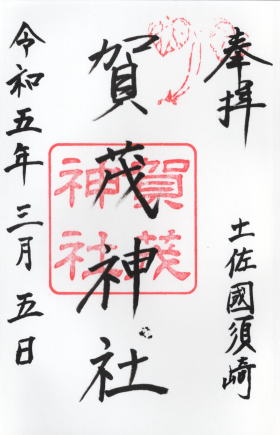 奉拝
土佐國須崎
賀茂神社
賀茂
神社
令和五年三月五日